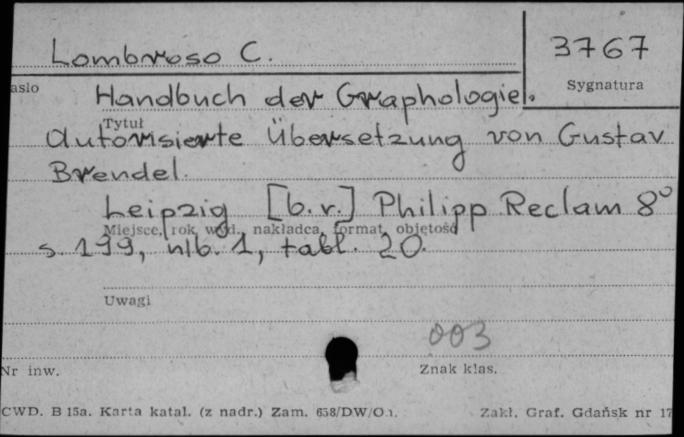 Lombroso C.
3767
asło
Sygnatura
Handbuch der Graphologie.
Tytuł
Autorisierte Übersetzung von Gustav
Brendel.
Leipzig [b.r.] Philipp Reclam 8°
Miejsce, rok wyd., nakładca, format, objętość
s. 199, nlb. 1, tabl. 20.
Uwagi
003
Nr inw.
Znak klas.
CWD. B 15a. Karta katal. (z nadr.) Zam. 658/DW/O.1. Zakł. Graf. Gdańsk nr 17